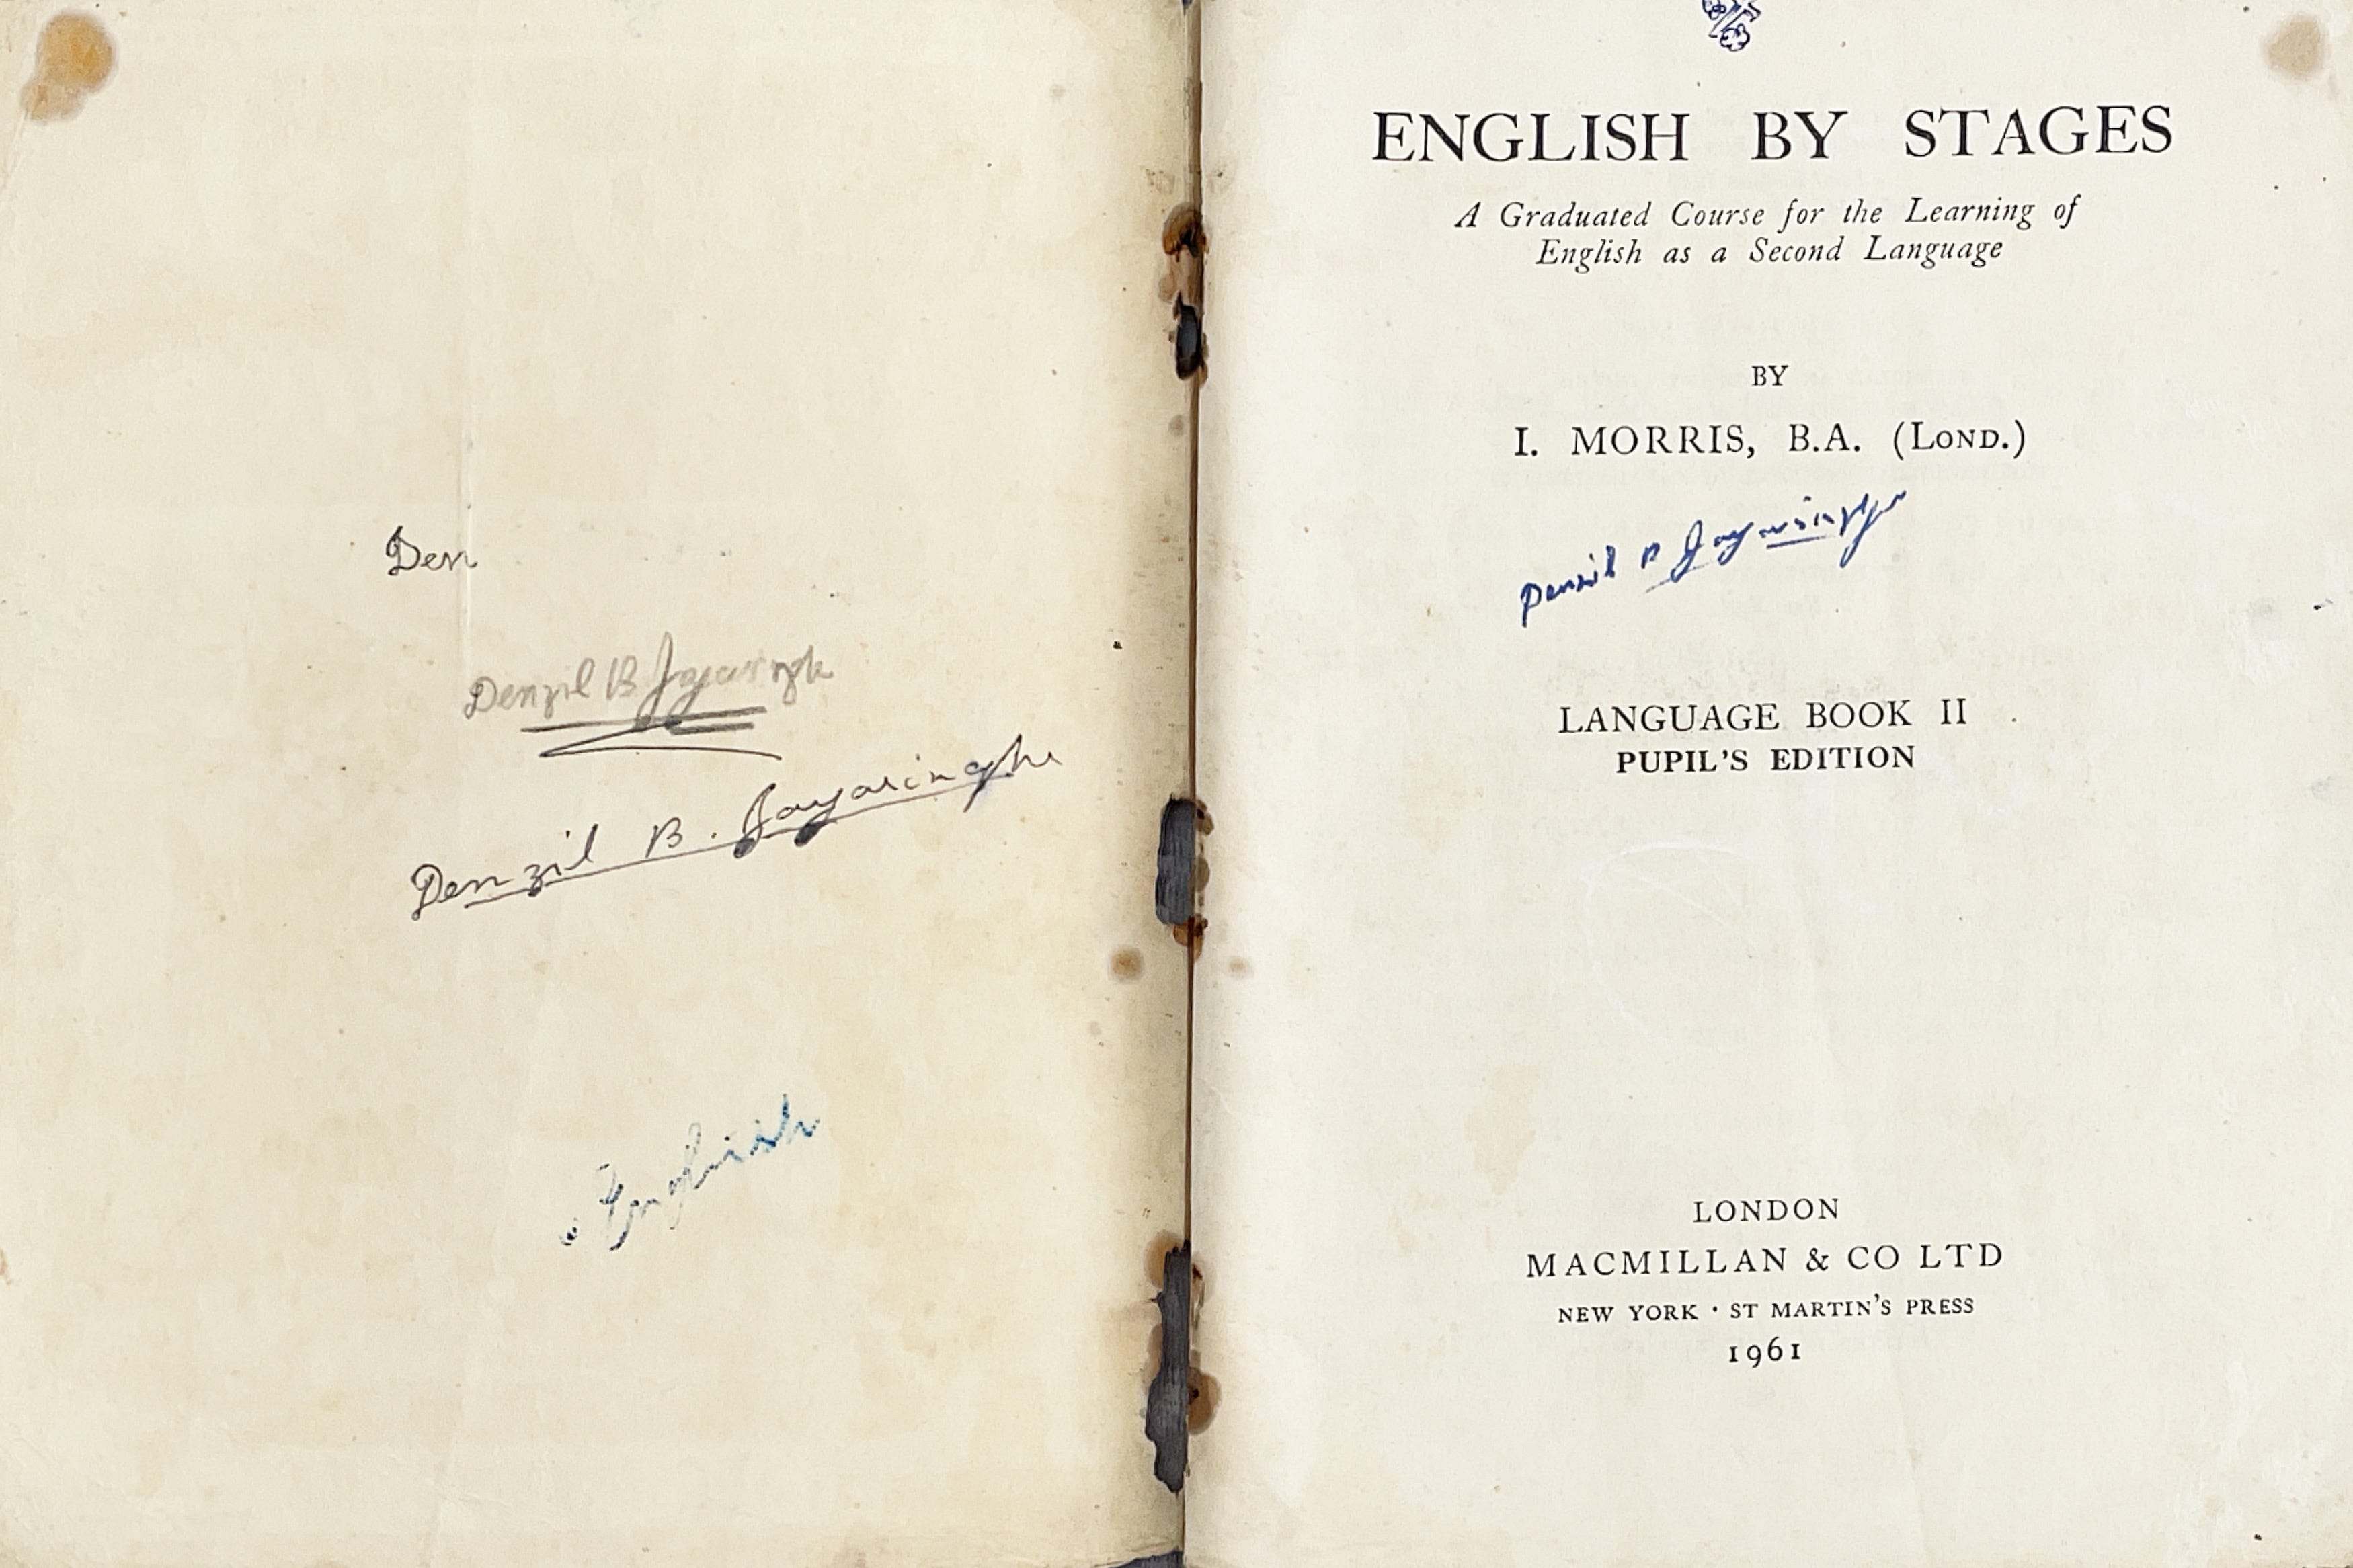 Den
Denzil B Jayasinghe
Denzil B. Jayasinghe
English
ENGLISH BY STAGES
A Graduated Course for the Learning of
English as a Second Language
BY
I. MORRIS, B.A. (LOND.)
Denzil B Jayasinghe
LANGUAGE BOOK II
PUPIL'S EDITION
LONDON
MACMILLAN & CO LTD
NEW YORK · ST MARTIN'S PRESS
1961